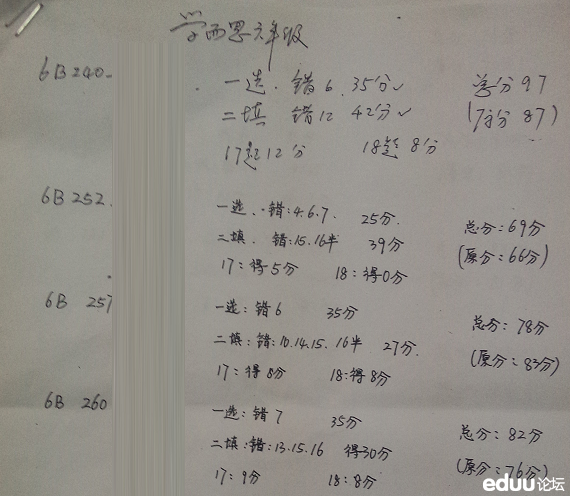 学而思六年级
6B240
一选. 错6. 35分✓ 总分97
二填 错12 42分✓ (原分87)
17题12分 18题8分
6B252.
一选、错:4.6.7. 25分. 总分:69分
二填. 错:15.16半 39分 (原分:66分)
17:得5分 18:得0分
6B 257
一选:错6 35分 总分:78分
二填:错:10.14.15.16半 27分. (原分:83分)
17:得8分 18:得8分
6B 260
一选:错7 35分 总分:82分
二填:错:13.15.16 得30分 (原分:76分)
17:9分 18:8分
eduu论坛